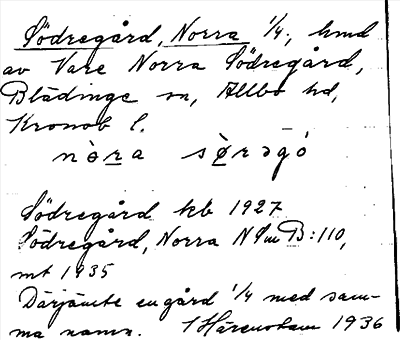 Södregård, Norra 1/4, hmd
av Vare Norra Södregård,
Blädinge sn, Allbo hd,
Kronob l.
nòra sø̀rəgó
Södregård kb 1927
Södregård, Norra N Sm B:110,
mt 1935
Därjämte en gård 1/4 med sam-
ma namn. 1936